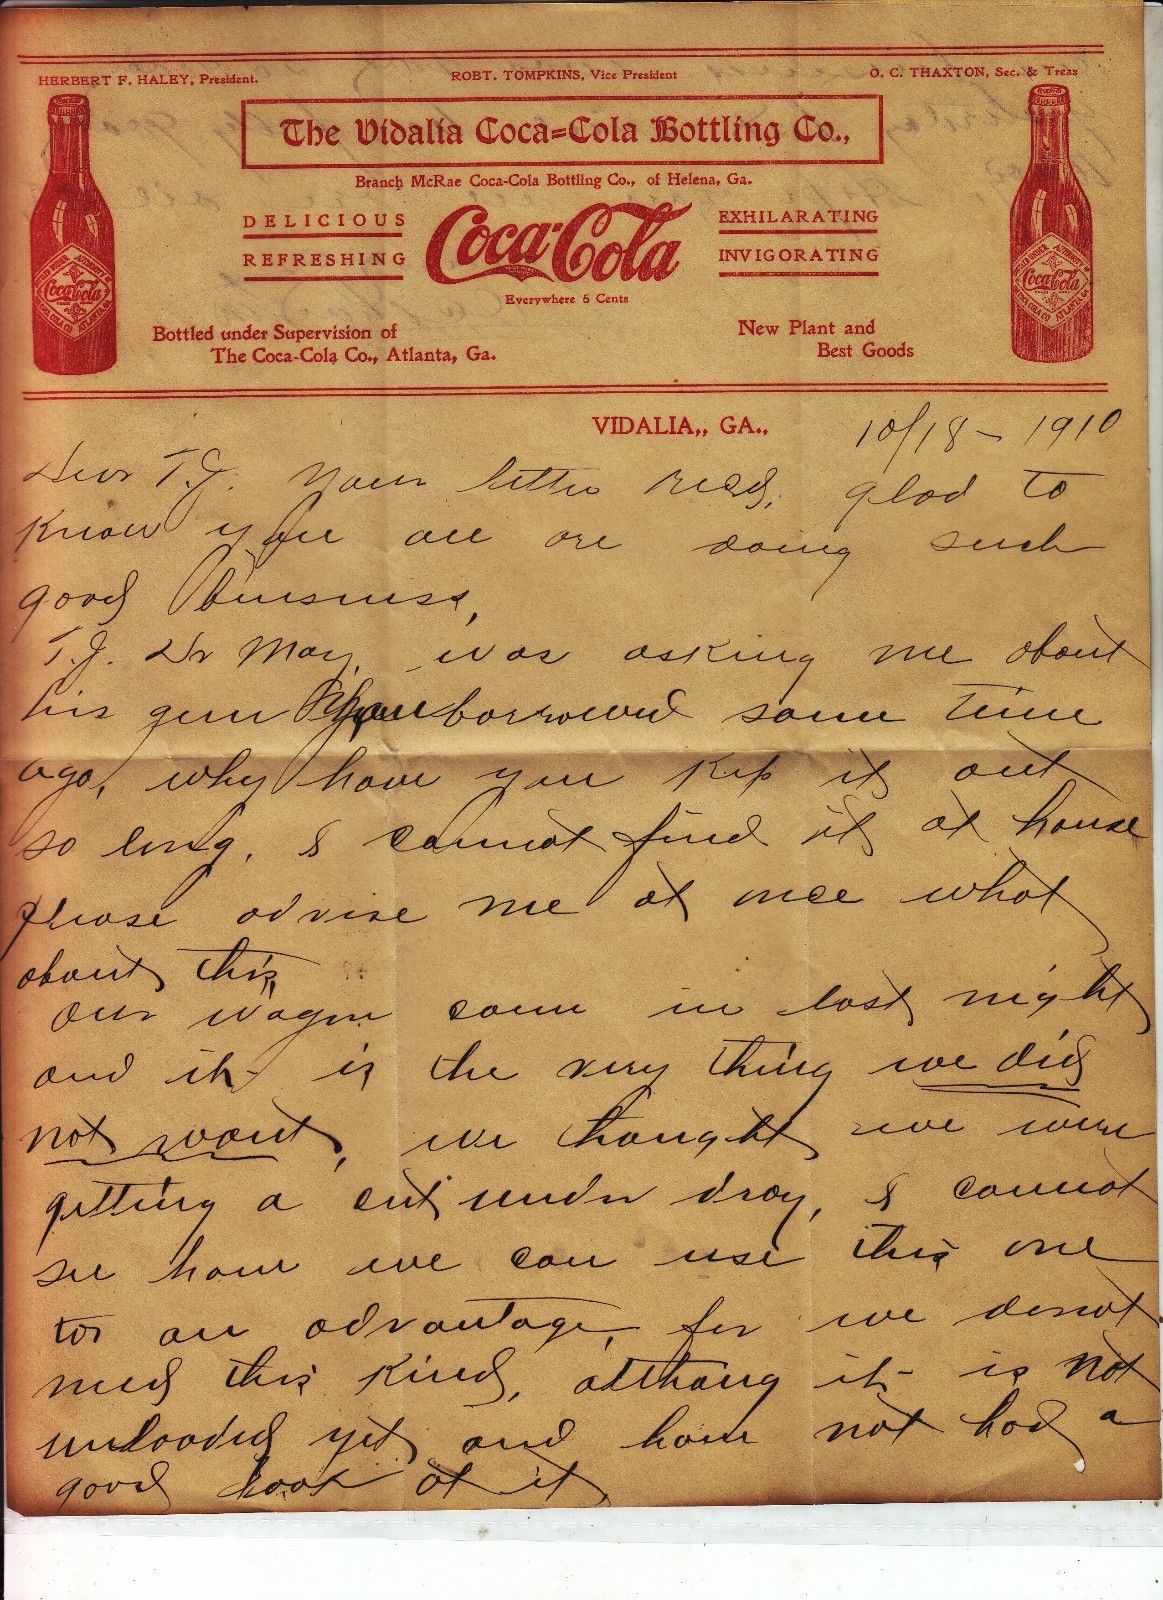 HERBERT F. HALEY, President. ROBT. TOMPKINS, Vice President O. C. THAXTON, Sec. & Treas
The Vidalia Coca=Cola Bottling Co.,
Branch McRae Coca-Cola Bottling Co., of Helena, Ga.
DELICIOUS Coca-Cola EXHILARATING
REFRESHING INVIGORATING
Everywhere 5 Cents
Bottled under Supervision of New Plant and
The Coca-Cola Co., Atlanta, Ga. Best Goods
Coca-Cola
Coca-Cola
VIDALIA,, GA., 10/18 - 1910
Dear T.J. Your letter recd, glad to
know you all are doing such
good business,
T.J. Dr May, was asking me about
his gun you borrowed some time
ago, why have you kep it out
so long, I cannot find it at house
please advise me at once what
about this,
Our wagon came in last night
and it is the very thing we did
not want, we thought we were
getting a cut under dray, I cannot
see how we can use this one
to an advantage, for we donot
need this kind, althoug it is not
unloaded yet and have not had a
good look at it,